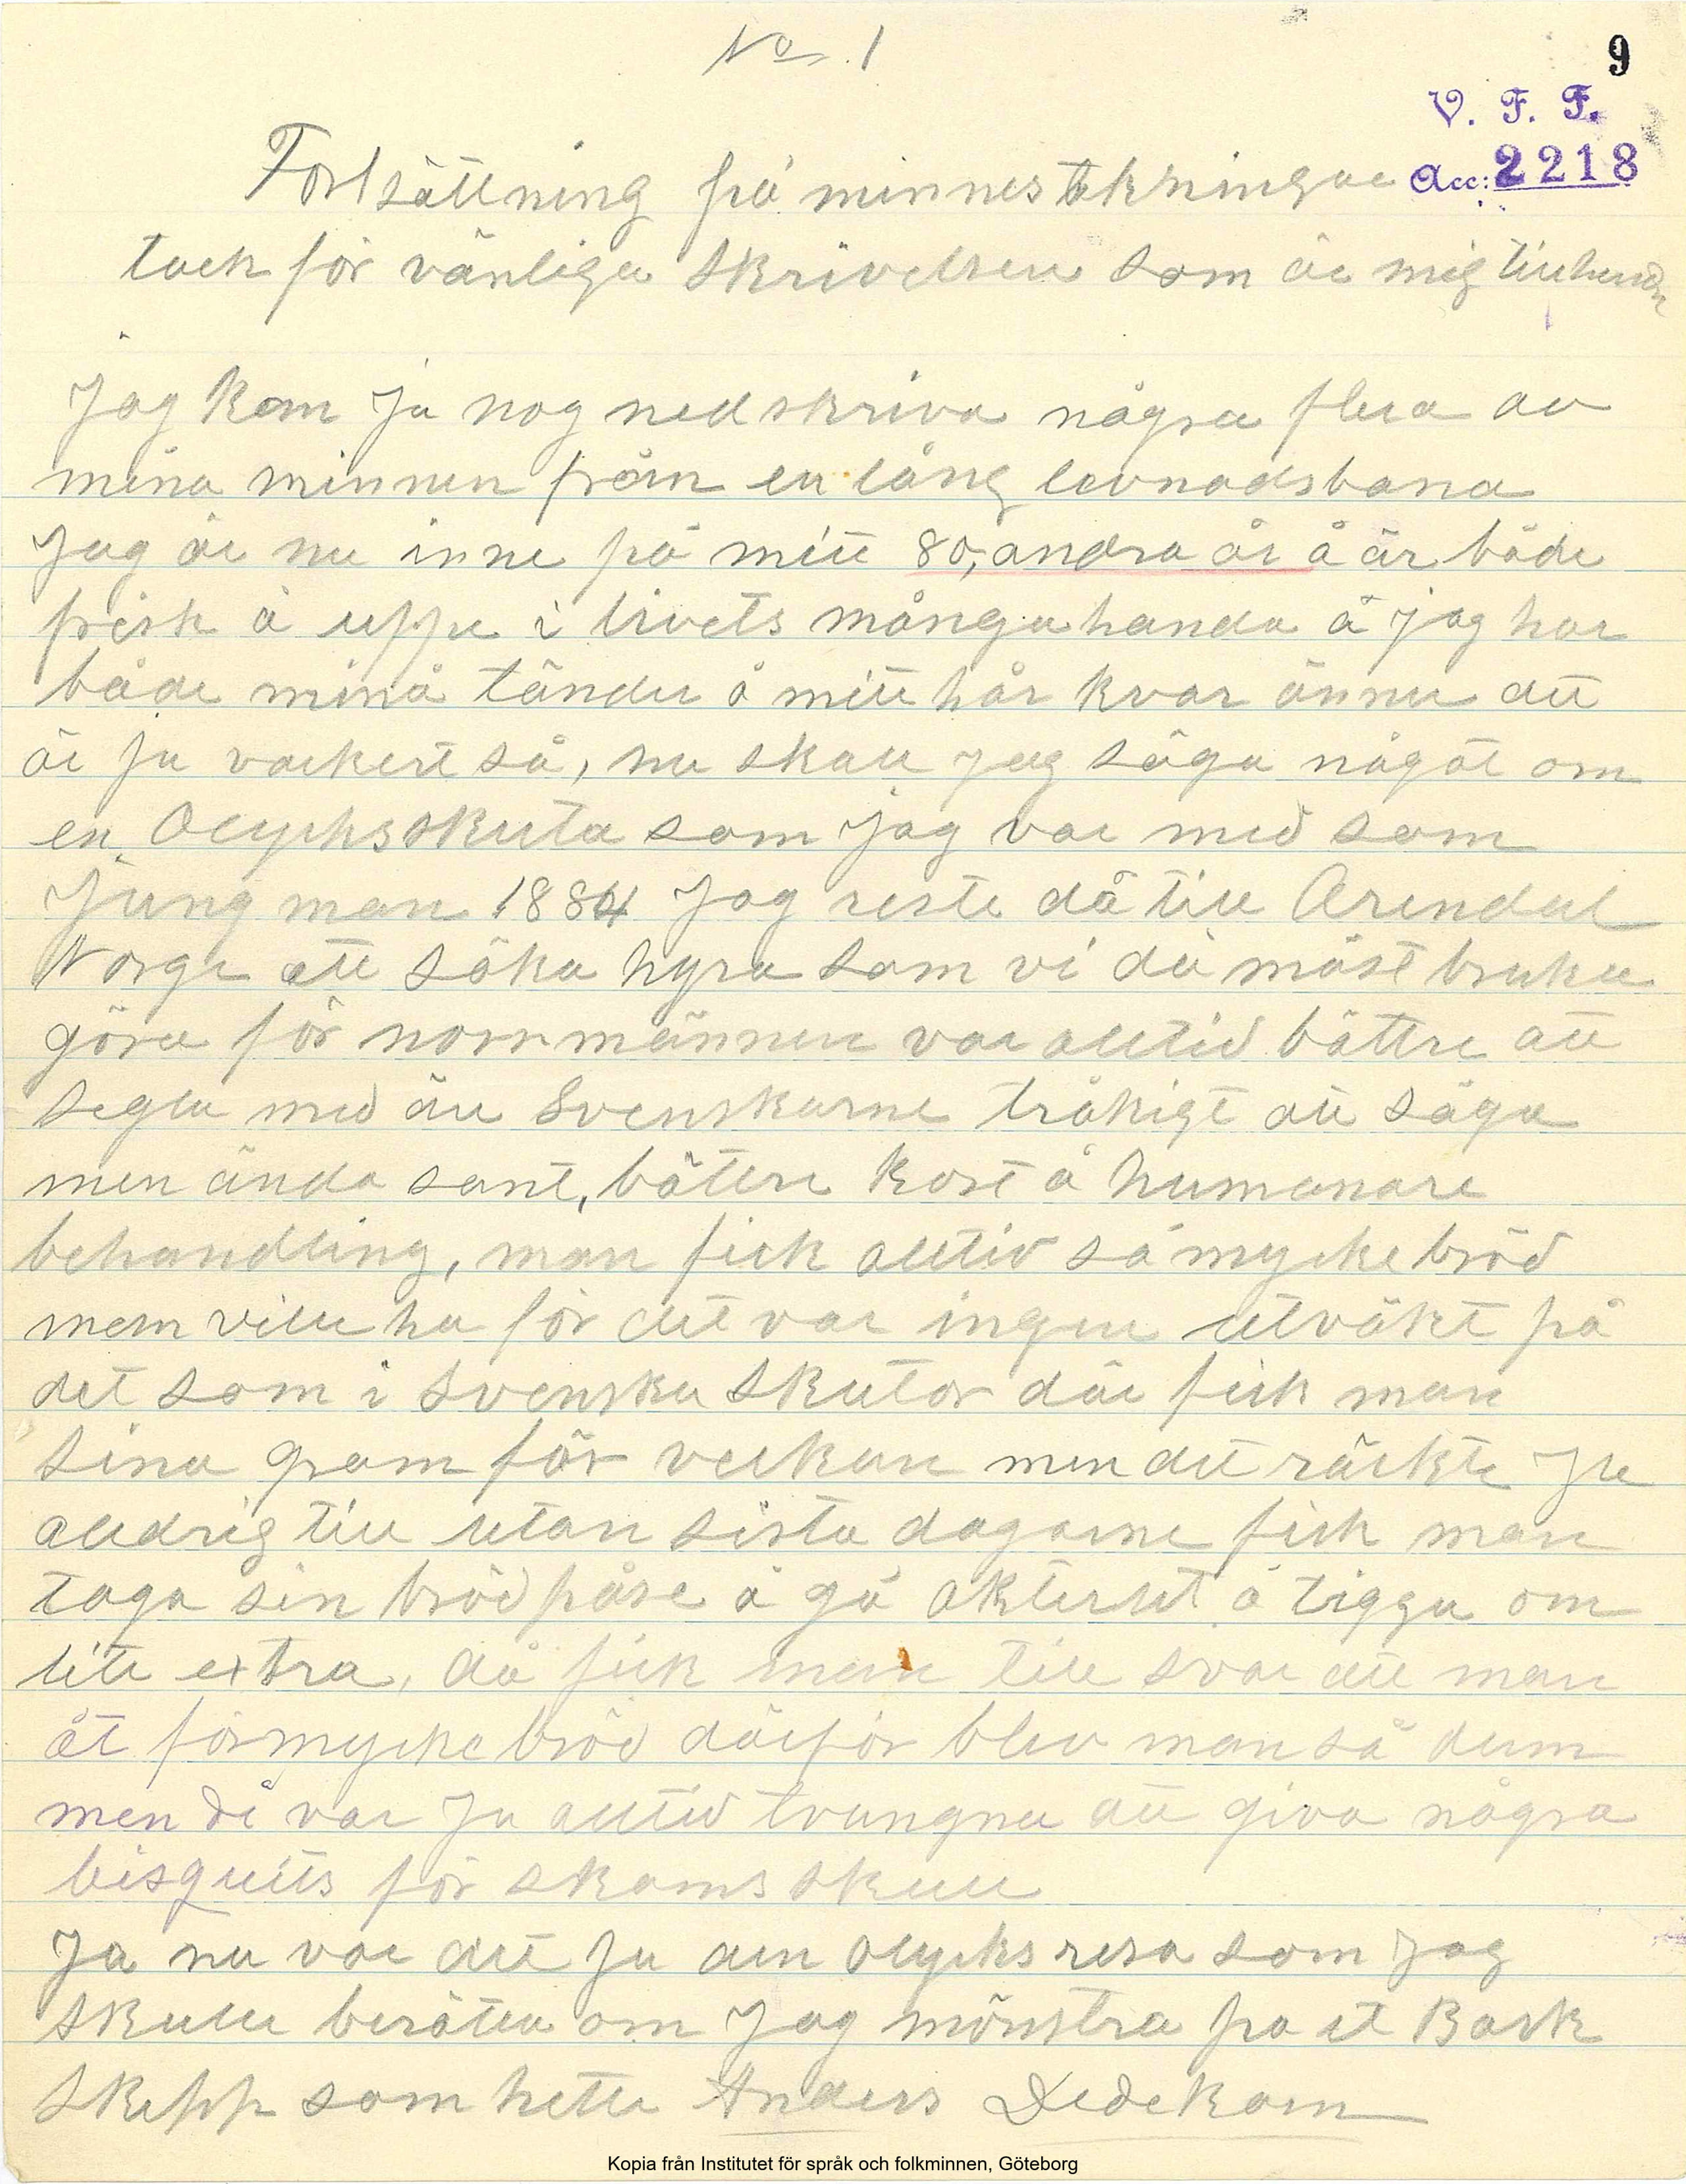 No 1
9
V. F. F.
Acc: 2218
Fortsättning på minnesteckningar
tack för vänliga skrivelsen som är mig tillhanda
Jag kan ju nog nedskriva några flera av
mina minnen från en lång levnadsbana
Jag är nu inne på mitt 80,andra år å är både
frisk å uppe i livets mångahanda å jag har
både mina tänder å mitt hår kvar ännu det
är ju vackert så, nu skall jag säga något om
en Olycksskuta som jag var med som
Jungman 1884 Jag reste då till Arendal
Norge att söka hyra som vi då mäst bruka
göra för norrmännen var alltid bättre att
segla med än Svenskarne tråkigt att säga
men ända sant, bättre kost å humanare
behandling, man fick alltid så mycke bröd
man ville ha för det var ingen utväkt på
det som i Svenska Skutor där fick man
sina gram för veckan men det räckte ju
alldrig till utan sista dagarne fick man
taga sin brödpåse å gå akterut å tigga om
lite extra, då fick man till svar att man
åt förmycke bröd därför blev man så dum
men di var ju alltid tvungna att giva några
bisquits för skams skull
Ja nu var det ju den olycksresa som jag
skulle berätta om Jag mönstra på et Bark
Skepp som hette Anders Dedekam
Kopia från Institutet för språk och folkminnen, Göteborg